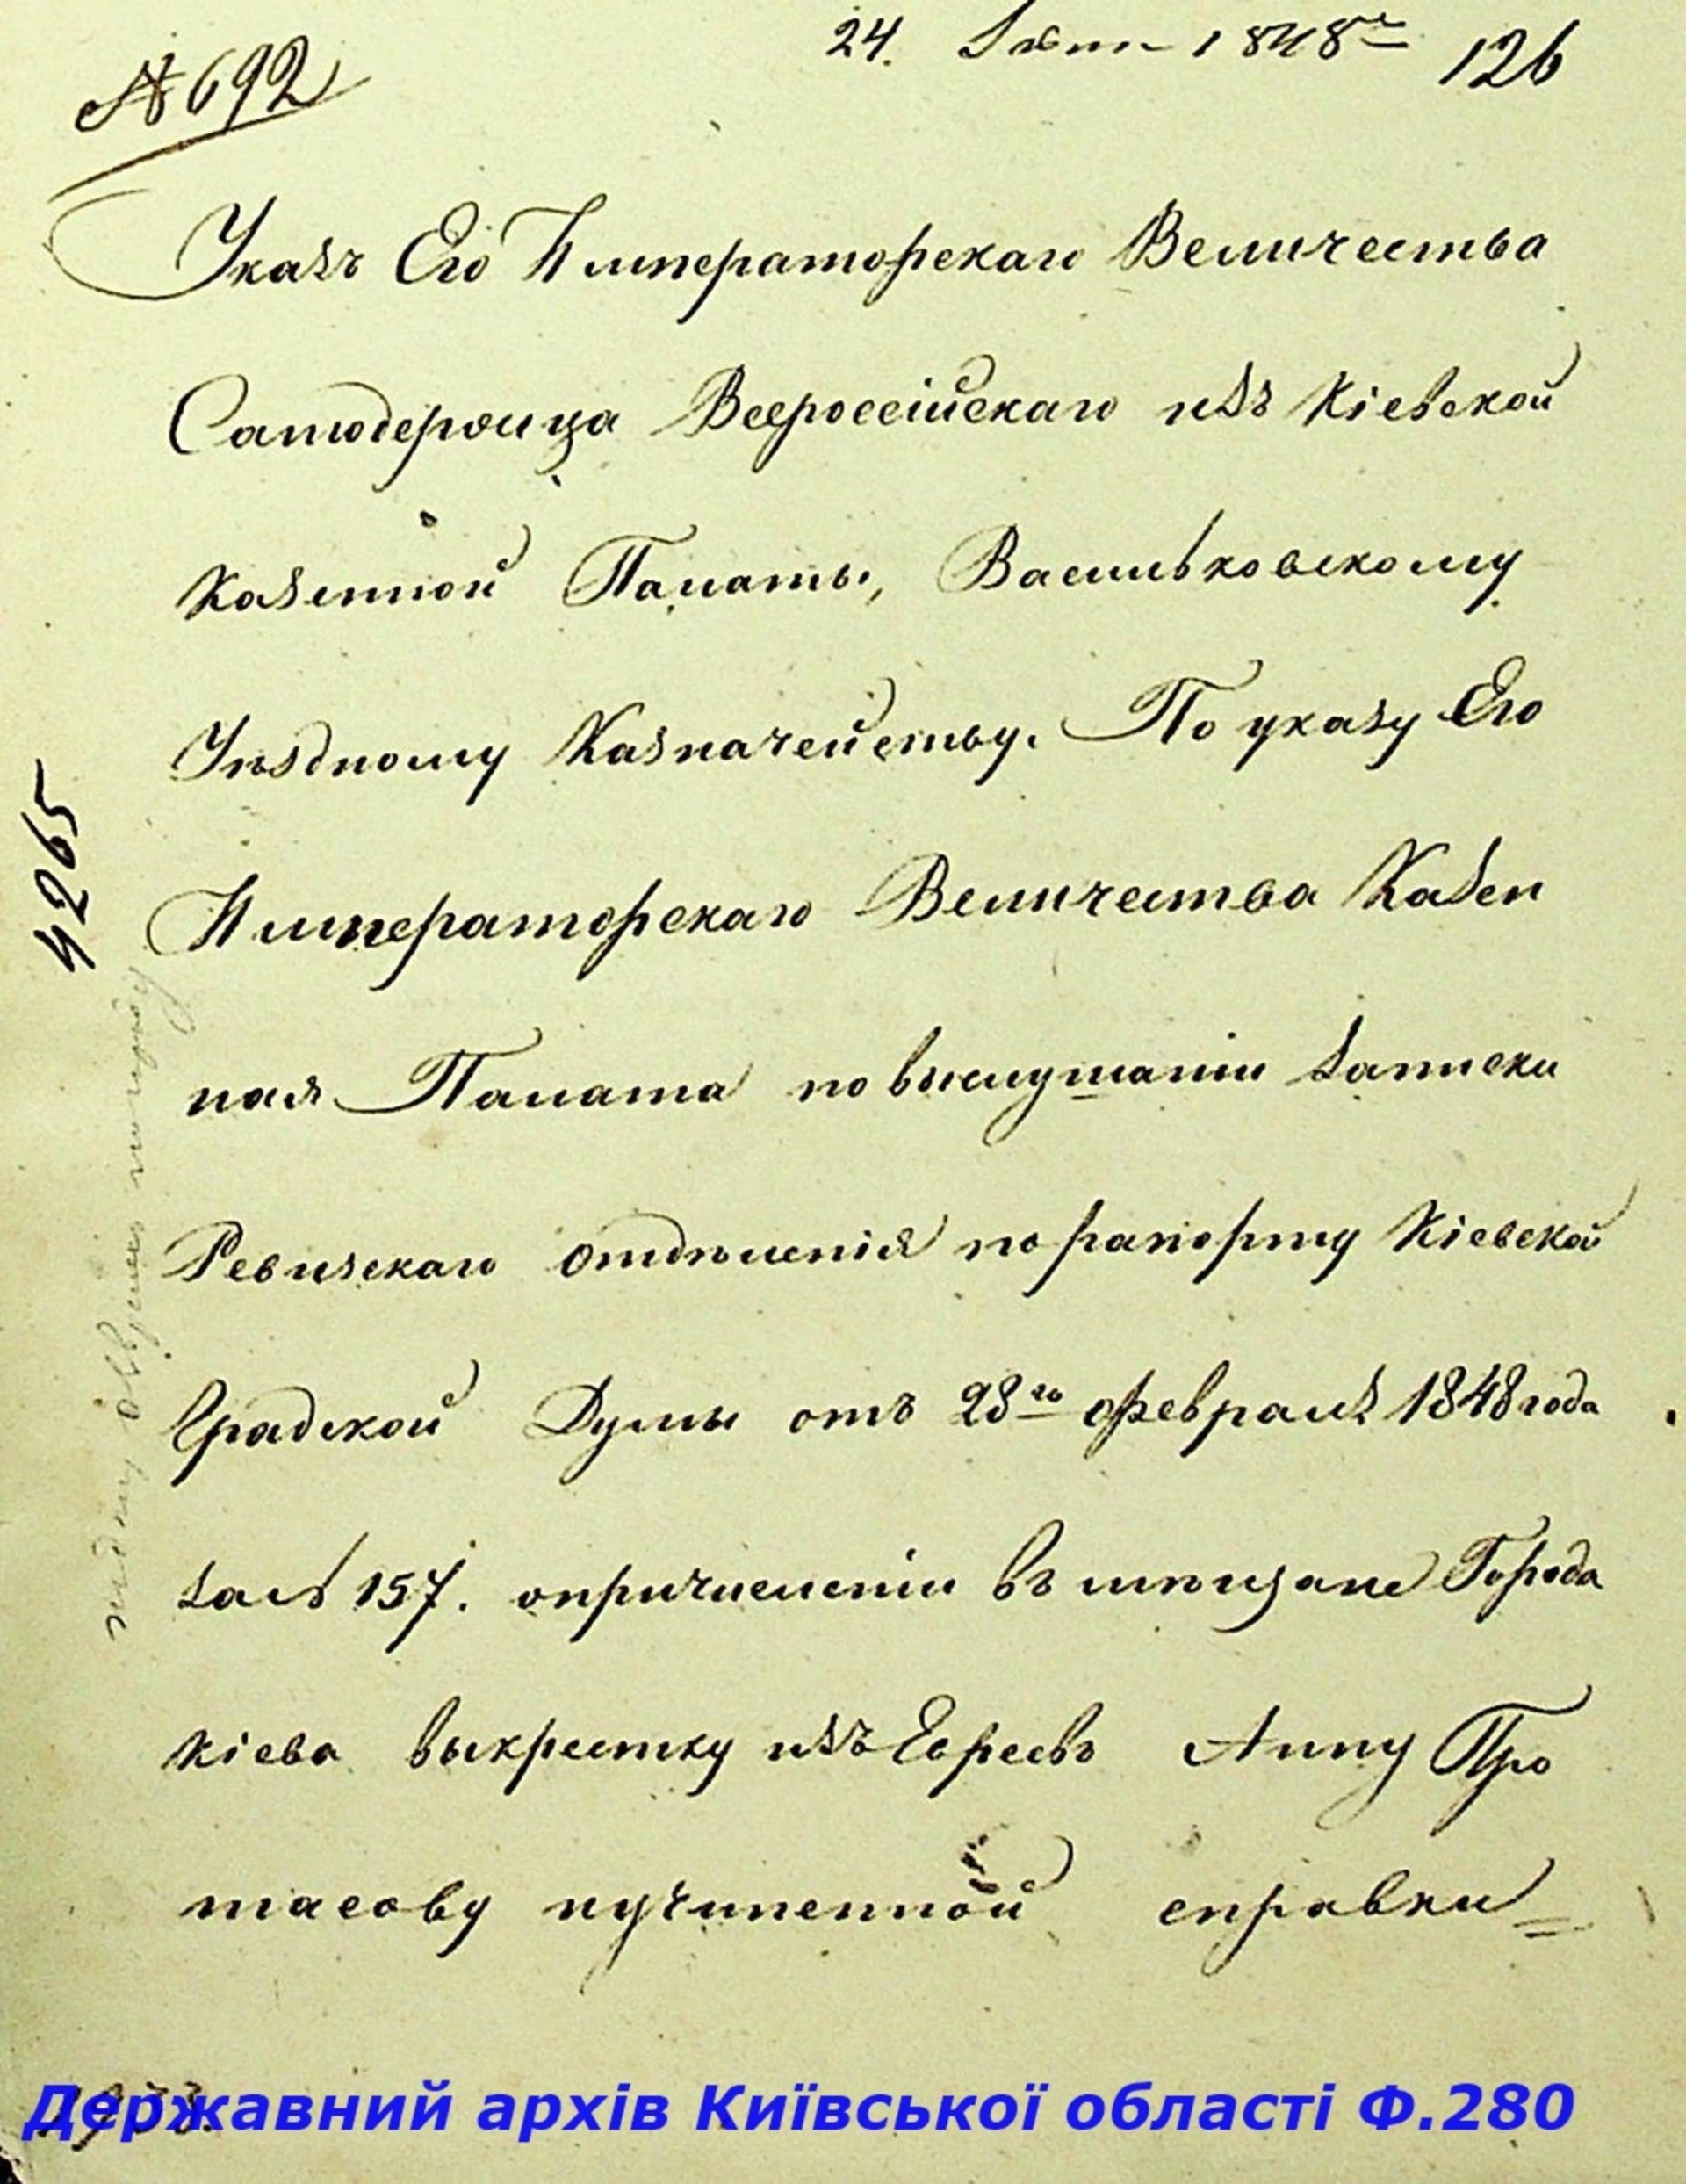 24. Іюня 1848 г. 126
№ 692
Указъ Его Императорскаго Величества
Самодержца Всероссійскаго изъ Кіевской
Казенной Палаты, Васильковскому
Уѣздному Казначейству. По указу Его
Императорскаго Величества Казен
ная Палата по выслушаніи записки
Ревизскаго отдѣленія по рапорту Кіевской
Градской Думы отъ 28го февраля 1848 года
за № 157. опричисленіи въ мѣщане Города
Кіева выкрестку изъ Евреевъ Анну Про
тасову иучиненной справки
4265
Державний архів Київської області Ф.280